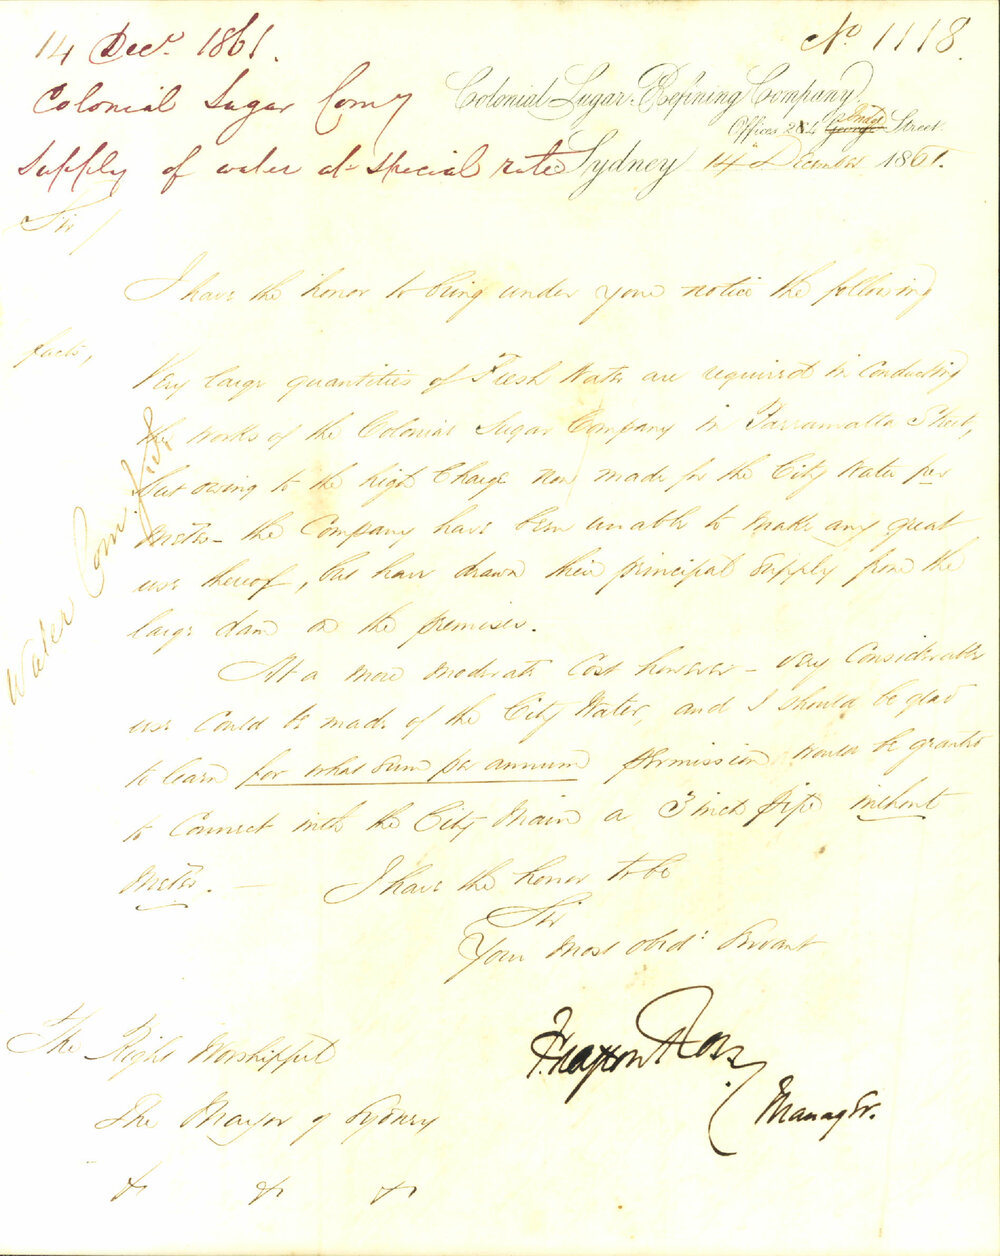 14 Decr. 1861.
No. 1118
Colonial Sugar Comy
Supply of water at special rate
Colonial Sugar Refining Company,
Offices 264 George Street.
Sydney 14 December 1861.
Sir/
I have the honor to bring under your notice the following
facts,
Very large quantities of Fresh Water are required in conducting
the works of the Colonial Sugar Company in Parramatta Street,
but owing to the high Charge now made for the City Water per
meter - the Company have been unable to make any great
use thereof, but have drawn their principal supply from the
large dam on the premises.
At a more moderate Cost however - very Considerable
use could be made of the City Water, and I should be glad
to learn for what sum per annum permission would be granted
to Connect with the City Main a 3 inch pipe without
meter. - I have the honor to be
Sir
Your most obdt. Servant
Ross
Manager.
The Right Worshipful
The Mayor of Sydney
Water Com